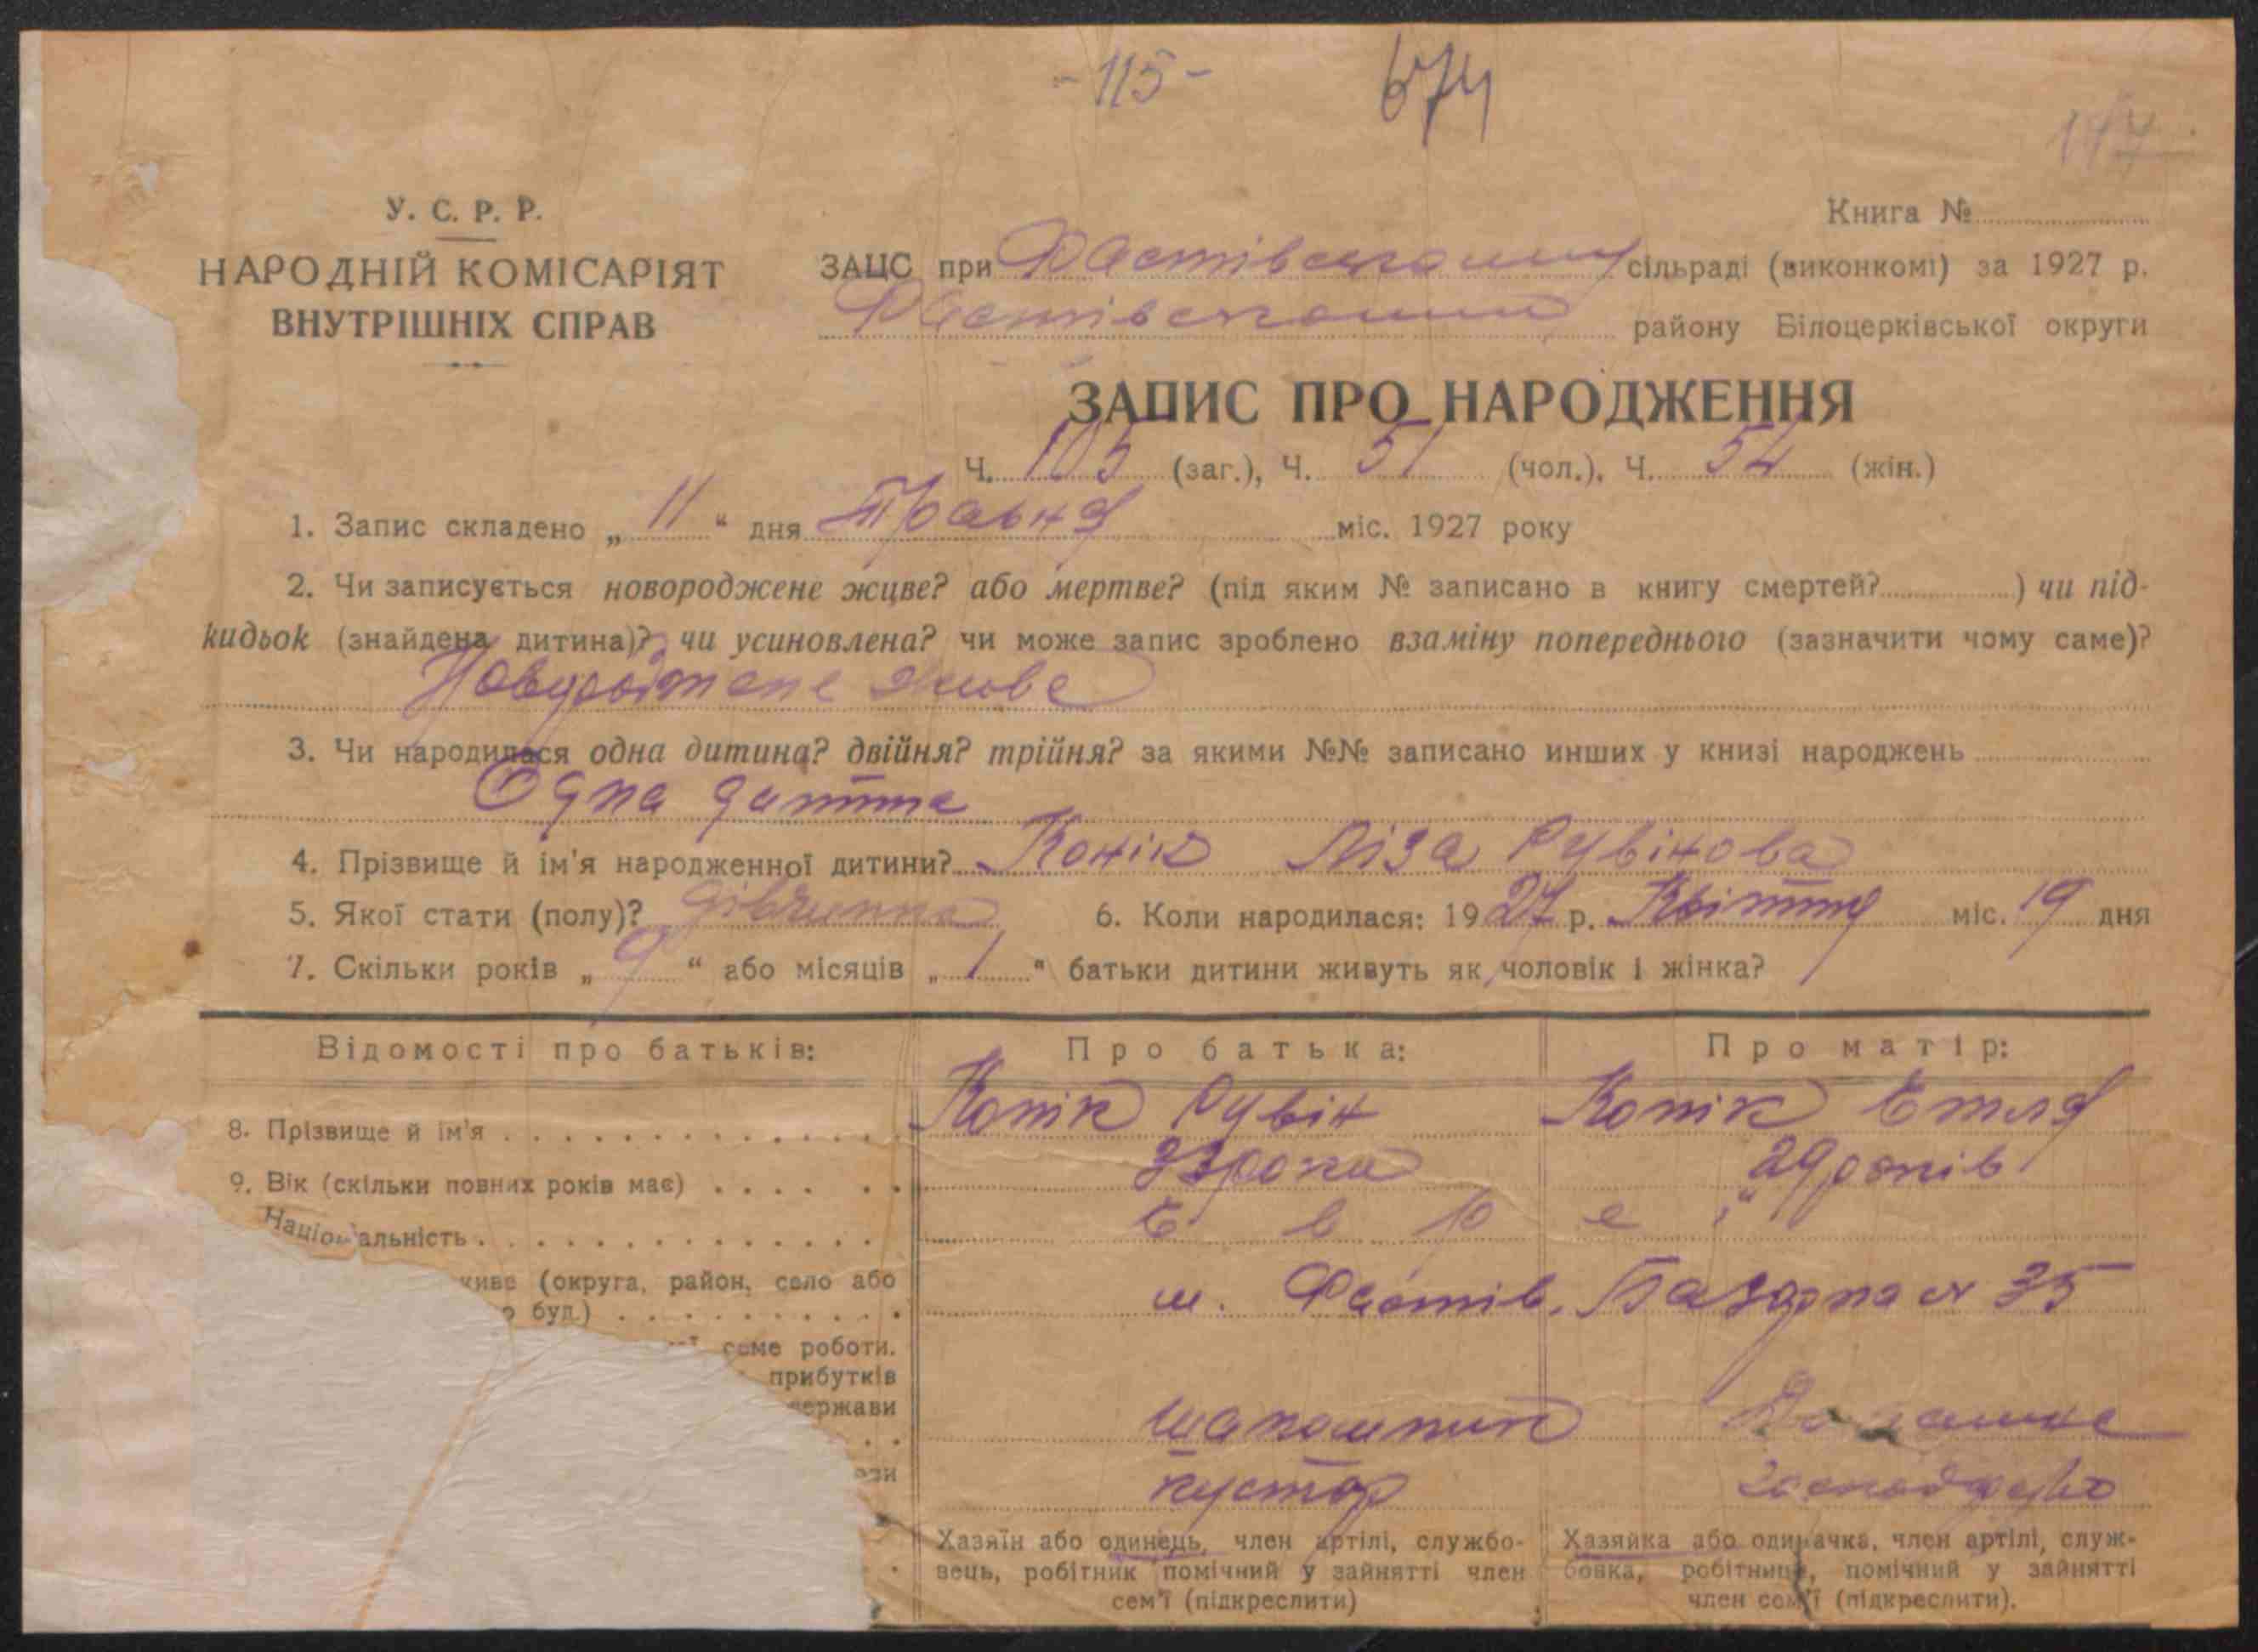 - 115 -
674
У. С. Р. Р.
НАРОДНІЙ КОМІСАРІЯТ
ВНУТРІШНІХ СПРАВ
Книга №
ЗАЦС при Фастівському сільраді (виконкомі) за 1927 р.
Фастівському району Білоцерківської округи
ЗАПИС ПРО НАРОДЖЕННЯ
Ч. 105 (заг.), Ч. 51 (чол.), Ч. 54 (жін.)
1. Запис складено „ 11 “ дня Травня міс. 1927 року
2. Чи записується новороджене живе? або мертве? (під яким № записано в книгу смертей? ) чи під-
кидьок (знайдена дитина)? чи усиновлена? чи може запис зроблено взаміну попереднього (зазначити чому саме)?
Новороджене живе
3. Чи народилася одна дитина? двійня? трійня? за якими №№ записано инших у книзі народжень
Одна дитина
4. Прізвище й ім'я народженної дитини? Конік Ліза Рувінова
5. Якої стати (полу)? дівчинка 6. Коли народилася: 1927 р. Квітня міс. 19 дня
7. Скільки років „ 9 “ або місяців „ / “ батьки дитини живуть як чоловік і жінка?
Відомості про батьків: Про батька: Про матір:
8. Прізвище й ім'я Конік Рувін Конік Етля
9. Вік (скільки повних років має) 33 роки 29 років
Національність Е в р е ї
живе (округа, район, село або
буд.) м. Фастів, Базарна № 35
саме роботи.
прибутків
держави
шапошник Домашнє
кустар господарство
Хазяїн або одинець, член артілі, службо- Хазяйка або одиначка, член артілі, служ-
вець, робітник помічний у зайнятті член бовка, робітниця, помічний у зайнятті
сем'ї (підкреслити) член сем'ї (підкреслити).